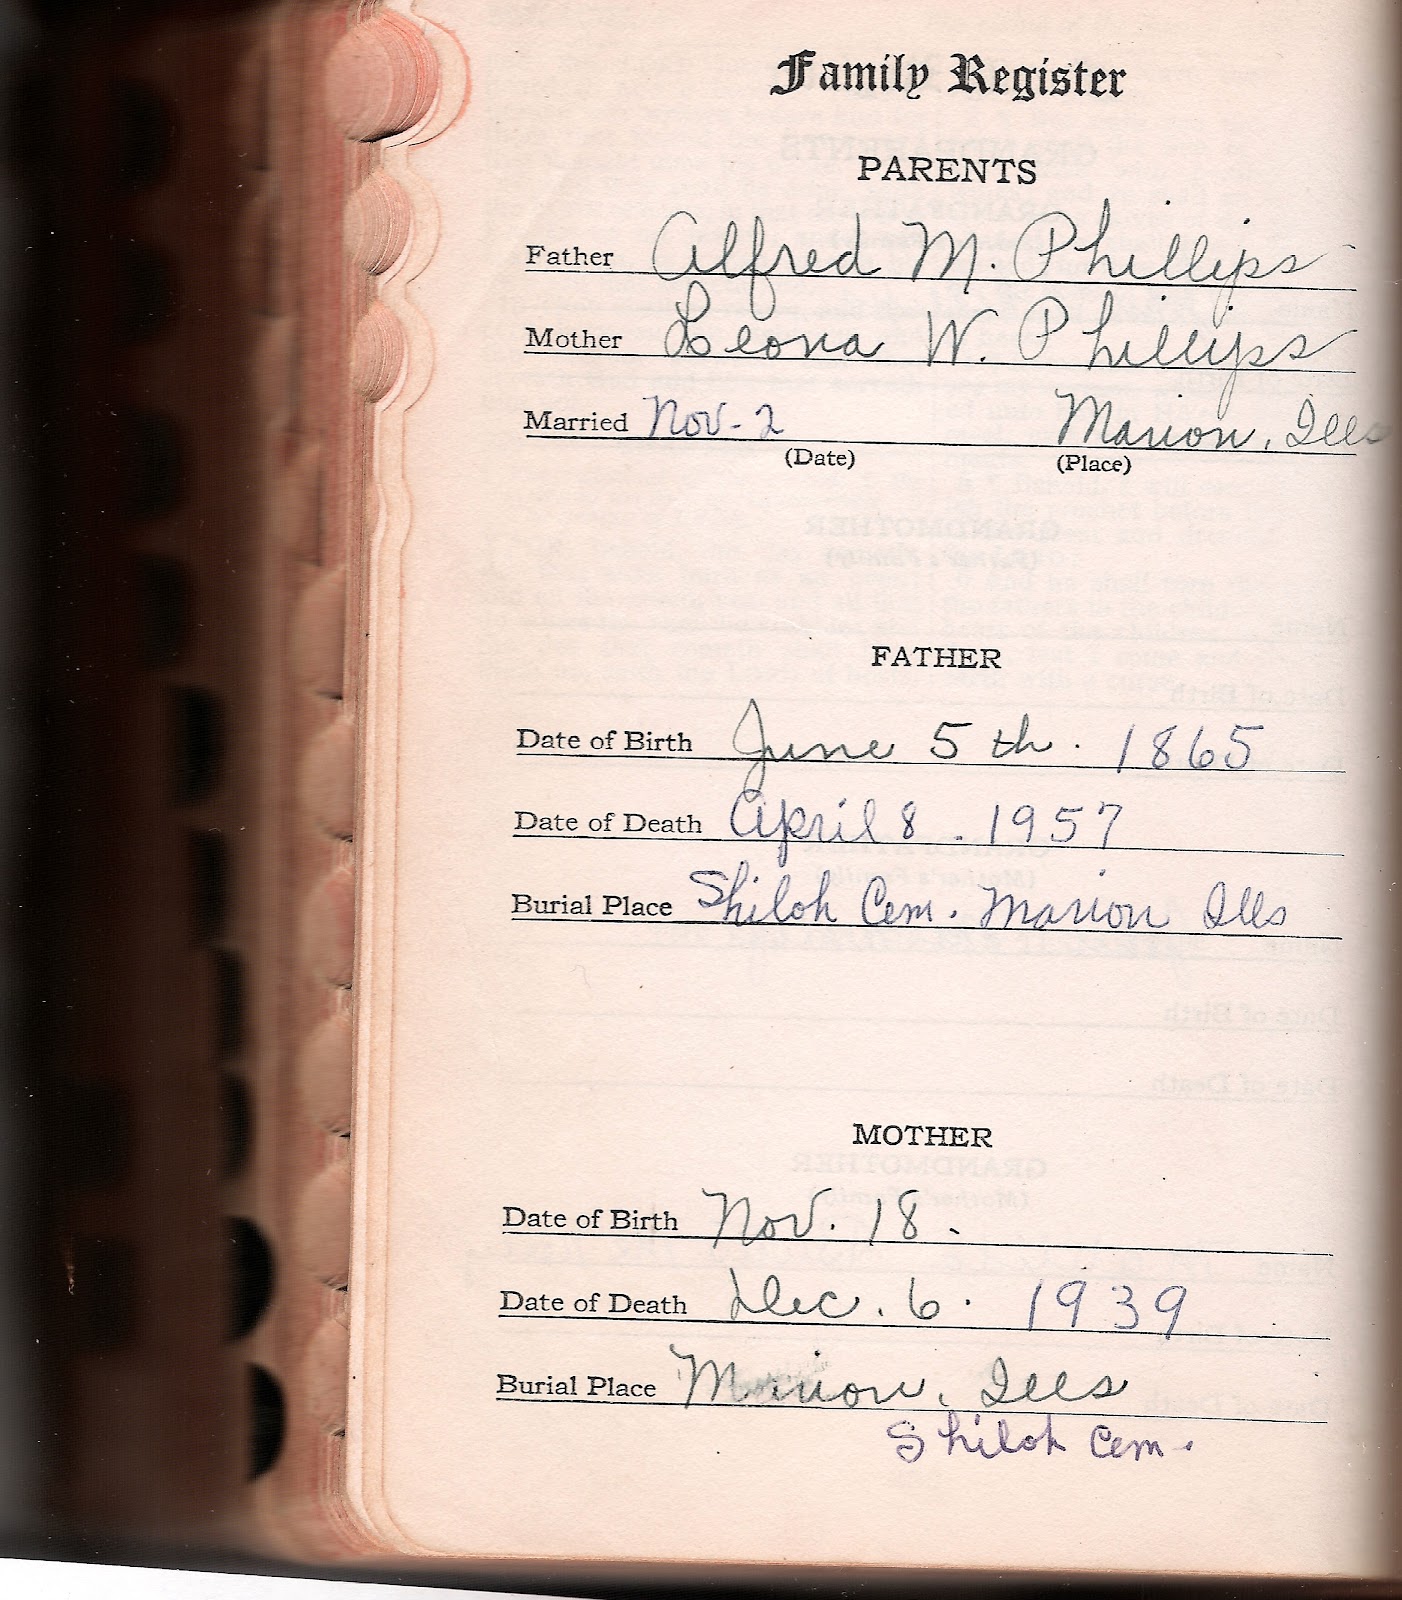 Family Register
PARENTS
Father Alfred M. Phillips
Mother Leona W. Phillips
Married Nov- 2 Marion, Ills
(Date) (Place)
FATHER
Date of Birth June 5th. 1865
Date of Death April 8. 1957
Burial Place Shiloh Cem. Marion Ills
MOTHER
Date of Birth Nov. 18.
Date of Death Dec. 6. 1939
Burial Place Marion, Ills
Shiloh Cem.